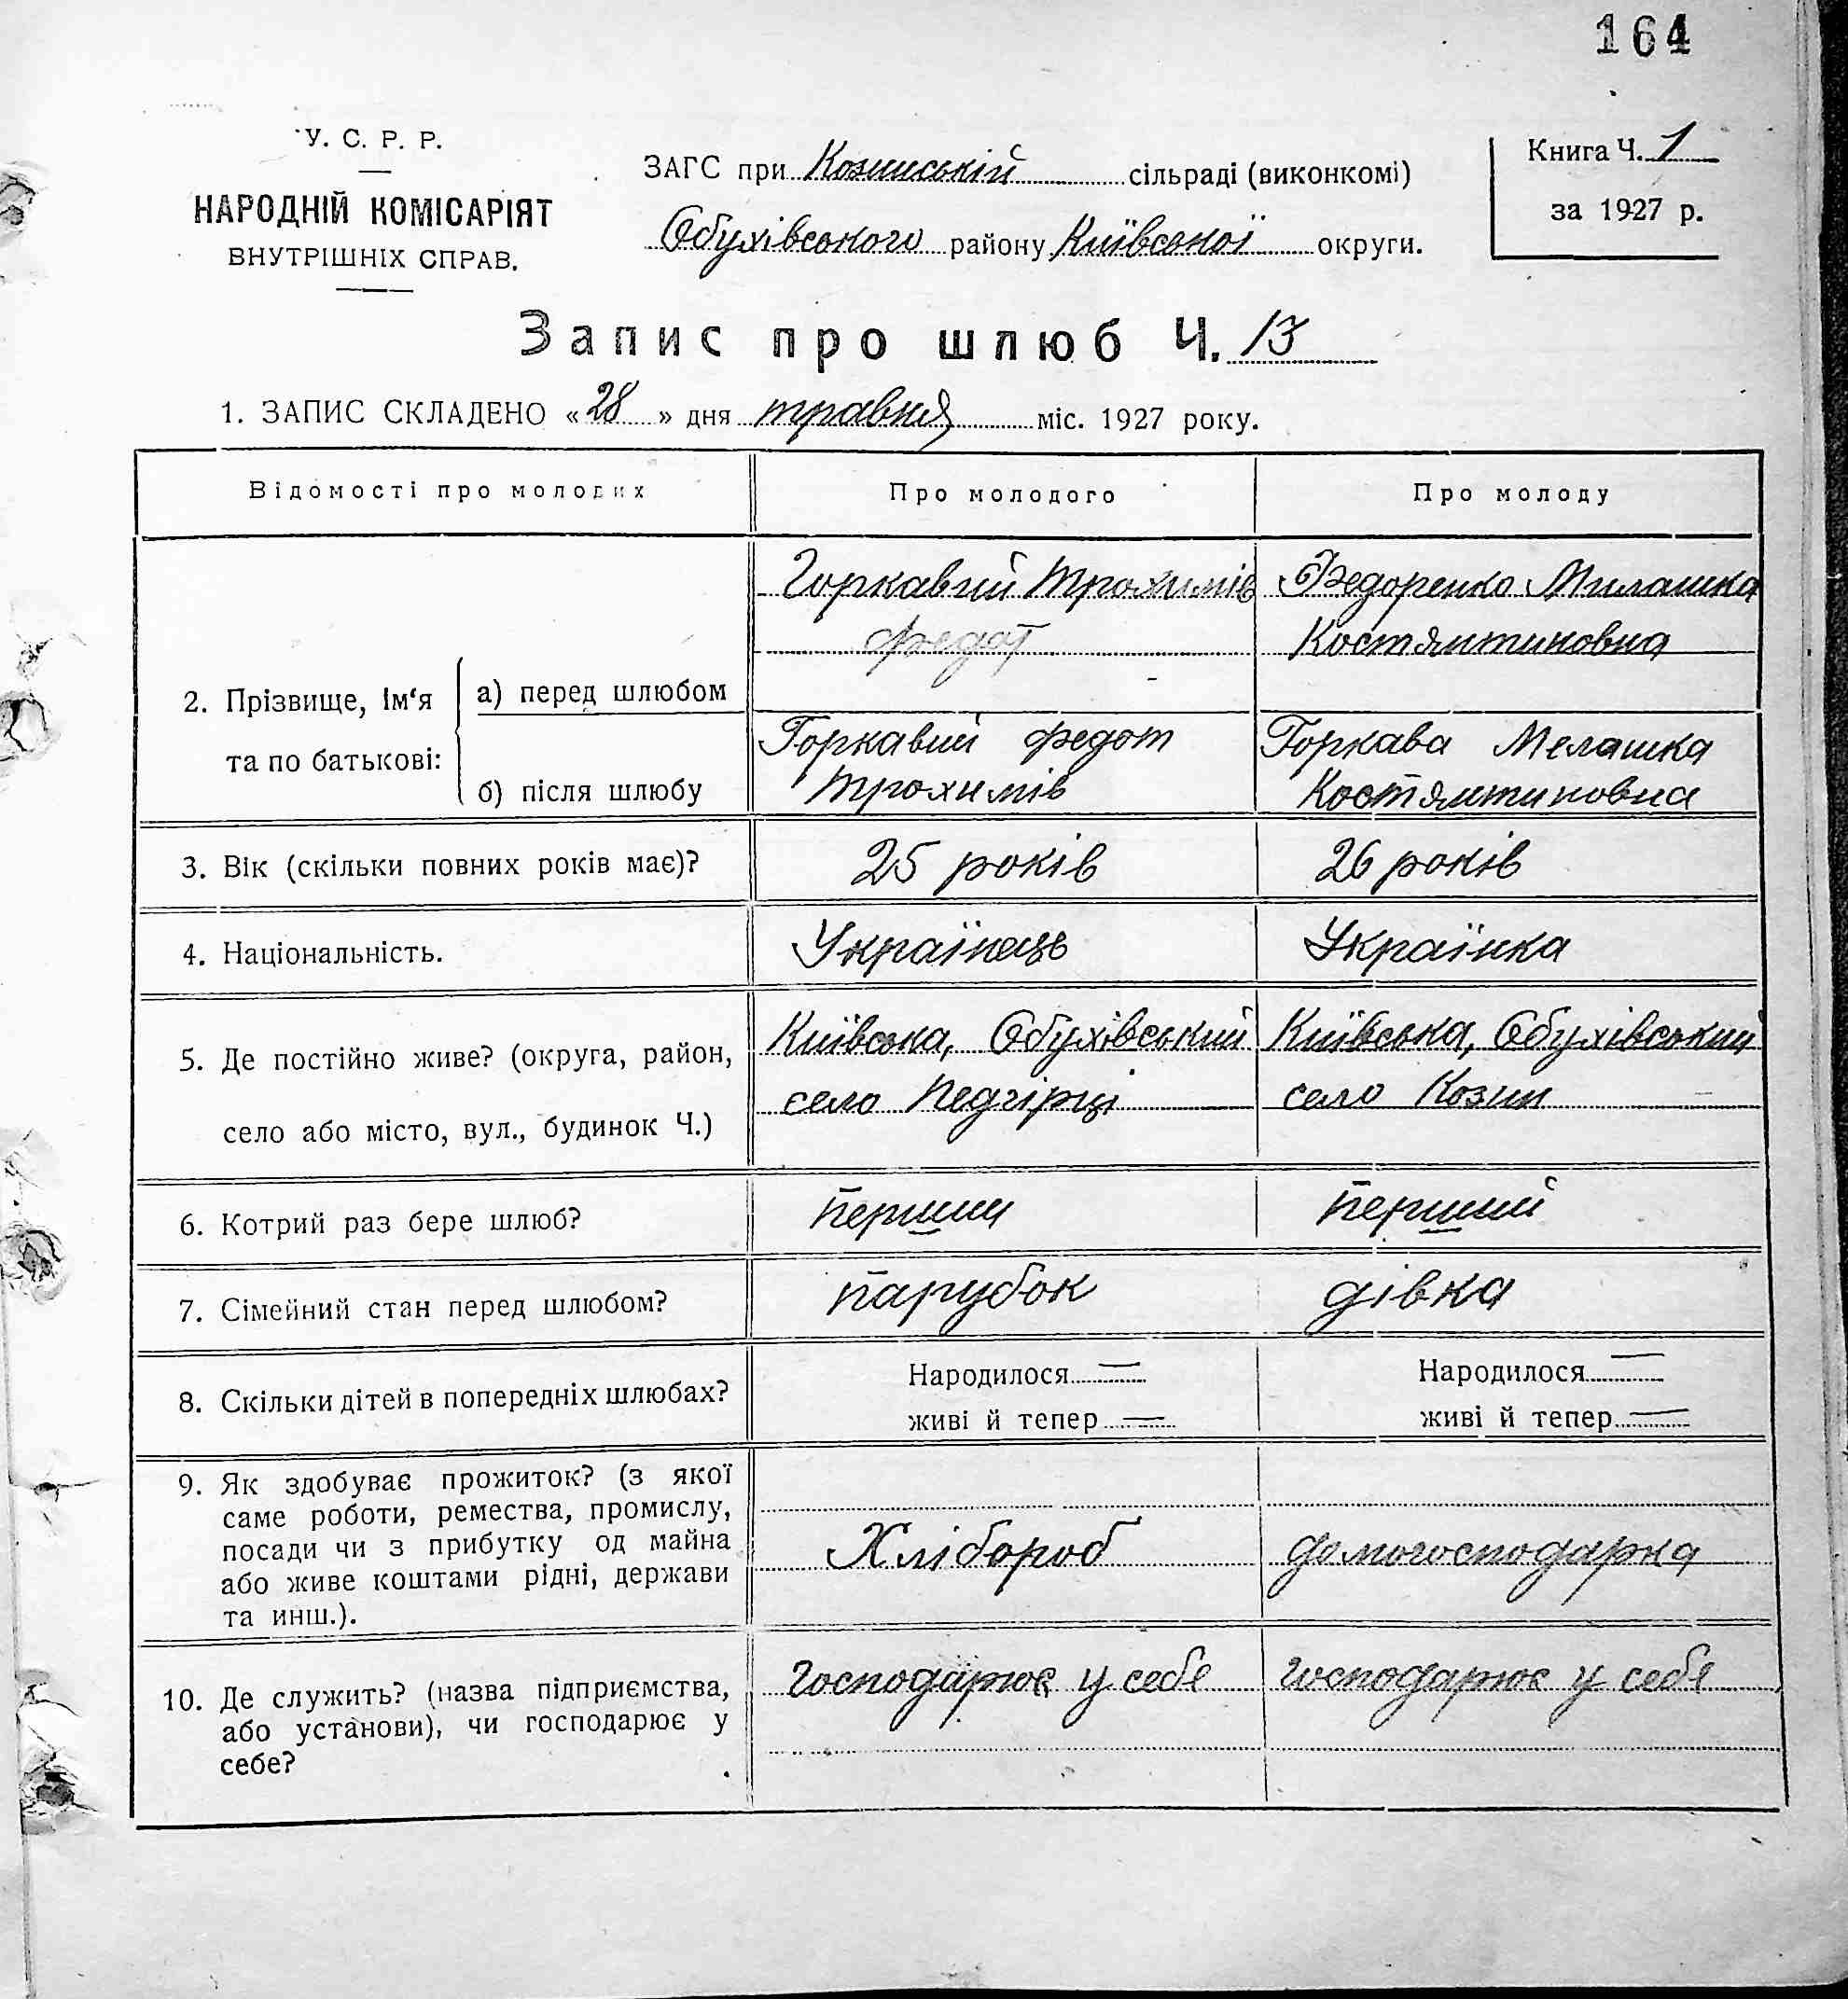 164
У. С. Р. Р.
НАРОДНІЙ КОМІСАРІЯТ
ВНУТРІШНІХ СПРАВ.
ЗАГС при Козинській сільраді (виконкомі)
Обухівського району Київської округи.
Книга Ч. 1
за 1927 р.
Запис про шлюб Ч. 13
1. ЗАПИС СКЛАДЕНО «28» дня травня міс. 1927 року.
Відомості про молодих
Про молодого
Про молоду
2. Прізвище, ім‘я та по батькові:
а) перед шлюбом
Горкавий Трохимів
Федот
Федоренко Милашка
Костянтиновна
б) після шлюбу
Горкавий Федот
Трохимів
Горкава Мелашка
Костянтиновна
3. Вік (скільки повних років має)?
25 років
26 років
4. Національність.
Українець
Українка
5. Де постійно живе? (округа, район,
село або місто, вул., будинок Ч.)
Київська, Обухівський
село Педгірці
Київська, Обухівський
село Козин
6. Котрий раз бере шлюб?
перший
перший
7. Сімейний стан перед шлюбом?
парубок
дівка
8. Скільки дітей в попередніх шлюбах?
Народилося —
живі й тепер —
Народилося —
живі й тепер —
9. Як здобуває прожиток? (з якої
саме роботи, ремества, промислу,
посади чи з прибутку од майна
або живе коштами рідні, держави
та инш.).
Хлібороб
домогосподарка
10. Де служить? (назва підприємства,
або установи), чи господарює у
себе?
Господарює у себе
Господарює у себе